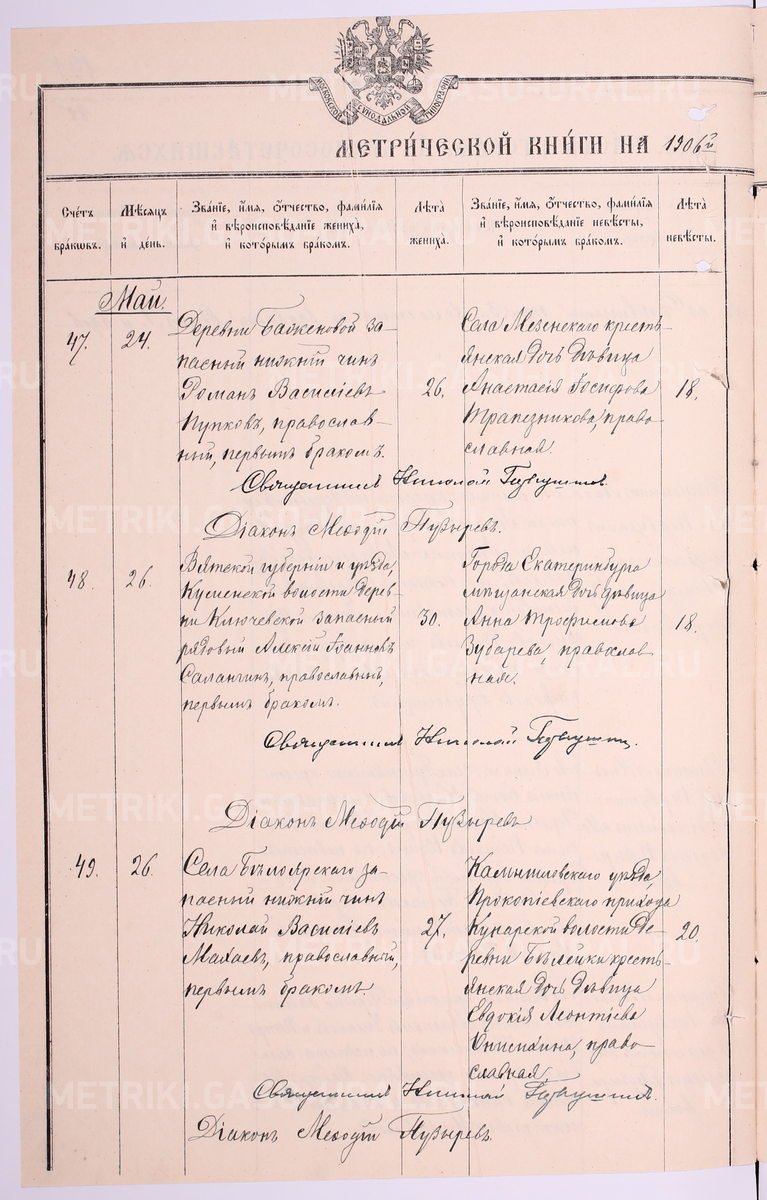 МОСКОВСКОЙ СѴНОДАЛЬНОЙ ТИПОГРАФІИ
МЕТРИ́ЧЕСКОЙ КНИ́ГИ НА 1906й
Сче́тъ
бра́кωвъ.
Мѣ́сяцъ
и҆ де́нь.
Зва́ніе, и҆́мя, ѻ҆́тчество, фами́лія
и҆ вѣроисповѣ́даніе жениха̀,
и҆ кото́рымъ бра́комъ.
Лѣ́та
жениха̀.
Зва́ніе, и҆́мя, ѻ҆́тчество, фами́лія
и҆ вѣроисповѣ́даніе невѣ́сты,
и҆ кото́рымъ бра́комъ.
Лѣ́та
невѣ́сты.
Май.
47.
24.
Деревни Баженовой за-
пасный нижній чинъ
Романъ Василіевъ
Пупковъ, православ-
ный, первымъ бракомъ.
26.
Села Мезенскаго кресть-
янская дочь дѣвица
Анастасія Іосифова
Трапезникова, право-
славная.
18.
Священникъ Николай
Діаконъ Меѳодій Пузыревъ.
48.
26.
Вятской губерніи и уѣзда,
Куменской волости дерев-
ни Ключевской запасный
рядовый Алексій Іоанновъ
Салангинъ, православный,
первымъ бракомъ.
30.
Города Екатеринбурга
мѣщанская дочь дѣвица
Анна Трофимова
Зубарева, православ-
ная.
18.
Священникъ Николай
Діаконъ Меѳодій Пузыревъ
49.
26.
Села Бѣлоярскаго за-
пасный нижній чинъ
Николай Василіевъ
Махаевъ, православный,
первымъ бракомъ.
27.
Камышловскаго уѣзда,
Прокопіевскаго прихода
Кунарской волости де-
ревни Бѣлейки кресть-
янская дочь дѣвица
Евдокія Леонтіева
право-
славная.
20.
Священникъ Николай
Діаконъ Меѳодій Пузыревъ.
METRIKI.GASO-URAL.RU